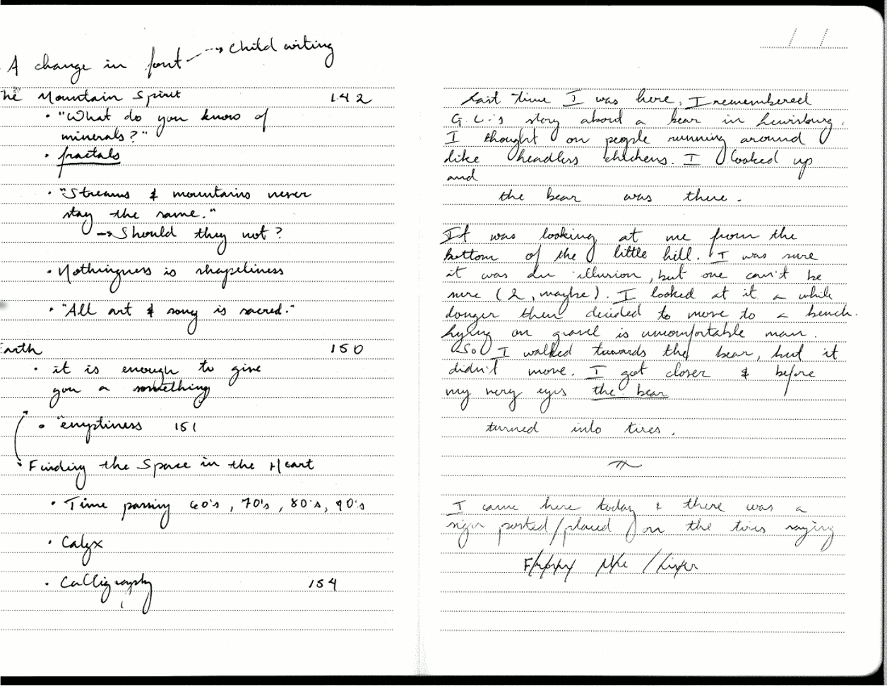 A change in font → Child writing
The Mountain Spirit 142
• "What do you know of
minerals?"
• fractals
• "Streams & mountains never
stay the same."
→ Should they not?
• Nothingness is shapeliness
• "All art & song is sacred."
Earth 150
• it is enough to give
you a something
• "emptiness 151
• Finding the Space in the Heart
• Time passing 60's, 70's, 80's, 90's
• Calyx
• Calligraphy 154
/ /
Last time I was here, I remembered
G.C.'s story about a bear in Lewisburg.
I thought on people running around
like headless chickens. I looked up
and
the bear was there.
It was looking at me from the
bottom of the little hill. I was sure
it was an illusion, but one can't be
sure (2, maybe). I looked at it a while
longer then decided to move to a bench.
Lying on gravel is uncomfortable man.
So I walked towards the bear, but it
didn't move. I got closer & before
my very eyes the bear
turned into tires.
I came here today & there was a
sign posted/placed on the tires saying